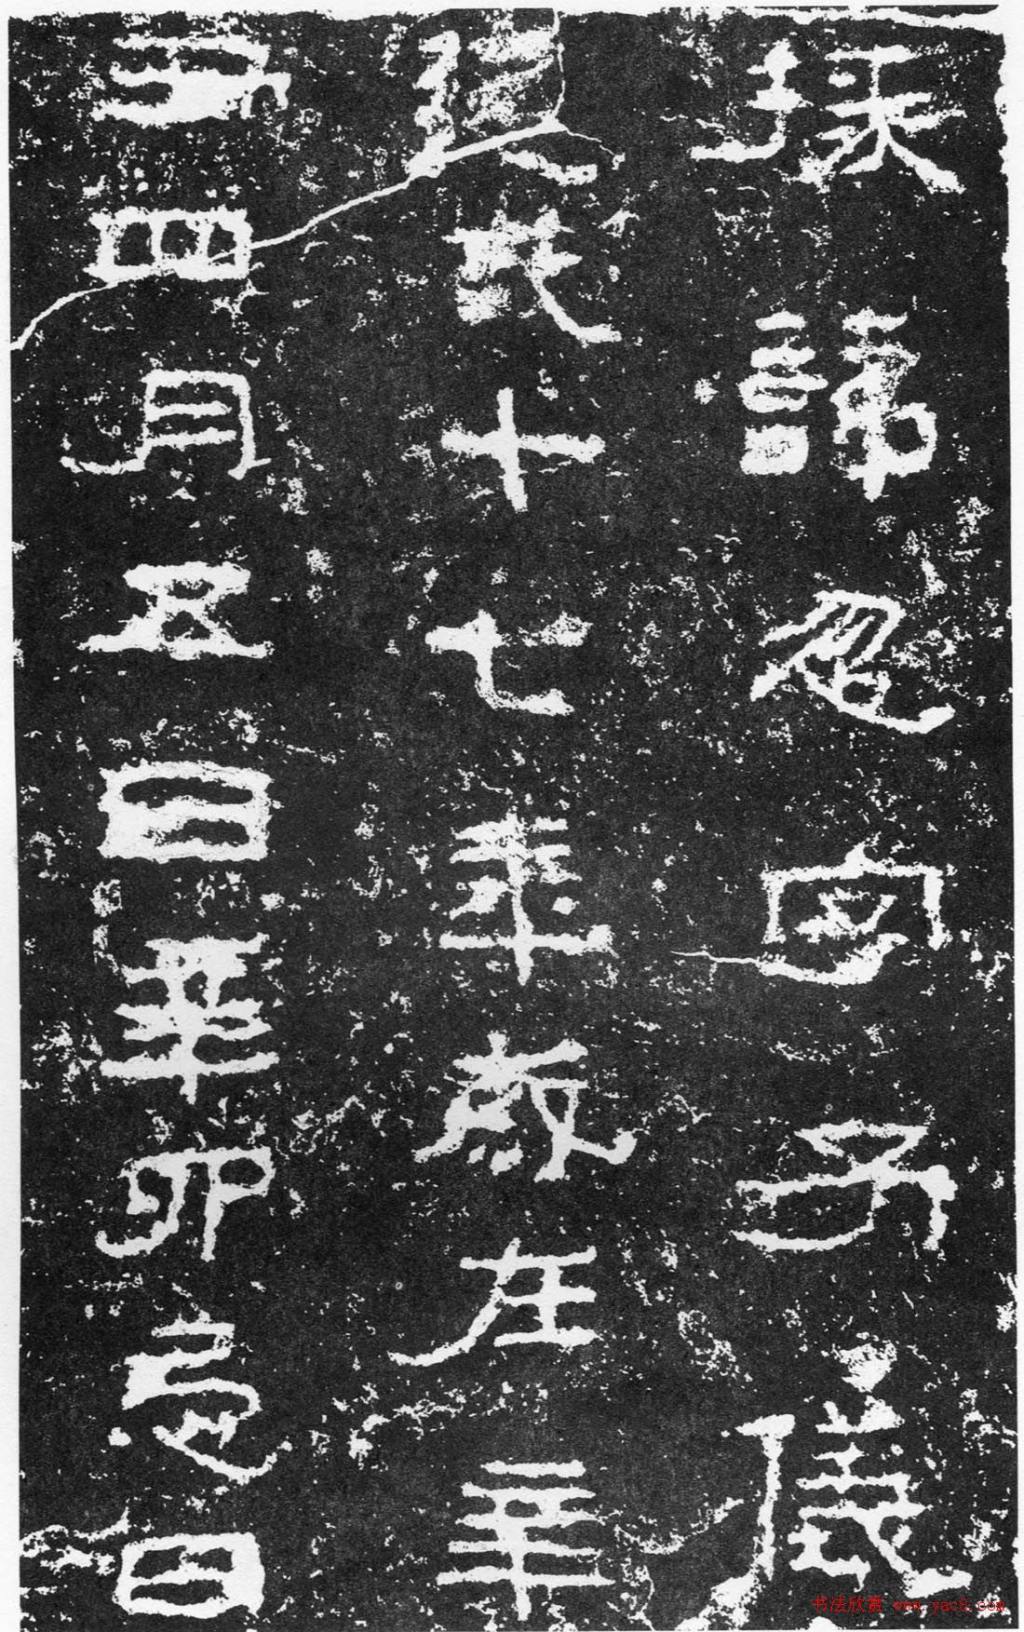 掾諱忽字子儀
建武十七年歲在辛
丑四月五日辛卯忌日
书法欣赏 www.yac8.com